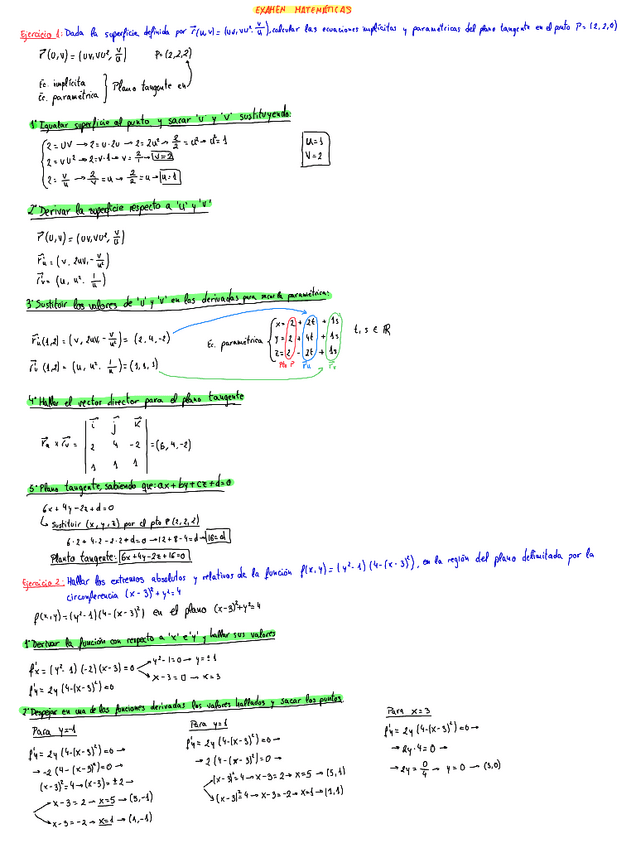 EXAMEN MATEMÁTICAS
Ejercicio 1: Dada la superficie definida por r⃗(u,v)=(uv, vu², v/u), calcular las ecuaciones implícitas y paramétricas del plano tangente en el punto P=(2,2,0)
r⃗(u,v)=(uv, vu², v/u) P=(2,2,2)
Ec. implícita
Ec. paramétrica } Plano tangente en
1º Igualar superficie al punto y sacar 'u' y 'v' sustituyendo:
2=uv → 2=u·2u → 2=2u² → 2/2=u² → u²=1
2=vu² → 2=v·1 → v=2/1 → v=2
2=v/u → 2/v=u → 2/2=u → u=1
u=1
v=2
2º Derivar la superficie respecto a 'u' y 'v'
r⃗(u,v)=(uv, vu², v/u)
r⃗u=(v, 2uv, -v/u²)
r⃗v=(u, u², 1/u)
3º Sustituir los valores de 'u' y 'v' en las derivadas para sacar la paramétrica:
r⃗u(1,2)=(v, 2uv, -v/u²)=(2,4,-2)
r⃗v(1,2)=(u, u², 1/u)=(1,1,1)
Ec. paramétrica { x=2+2t+1s
y=2+4t+1s
z=2-2t+1s
t, s ∈ ℝ
Pto P r⃗u r⃗v
4º Hallar el vector director para el plano tangente
r⃗u × r⃗v = | i⃗ j⃗ k⃗
2 4 -2
1 1 1 | =(6,4,-2)
5º Plano tangente, sabiendo que: ax+by+cz+d=0
6x+4y-2z+d=0
Sustituir (x,y,z) por el pto P(2,2,2)
6·2+4·2-2·2+d=0 → 12+8-4=d → 16=d
Planto tangente: 6x+4y-2z+16=0
Ejercicio 2: Hallar los extremos absolutos y relativos de la función f(x,y)=(y²-1)(4-(x-3)²), en la región del plano delimitada por la
circunferencia (x-3)²+y²=4
f(x,y)=(y²-1)(4-(x-3)²) en el plano (x-3)²+y²=4
1º Derivar la función con respecto a 'x' e 'y' y hallar sus valores
f'x=(y²-1)(-2)(x-3)=0 y²-1=0 → y=±1
x-3=0 → x=3
f'y=2y(4-(x-3)²)=0
2º Despejar en una de las funciones derivadas los valores hallados y sacar los puntos
Para y=-1
f'y=2y(4-(x-3)²)=0 →
→ -2(4-(x-3)²)=0 →
(x-3)²=4 → (x-3)=±2 →
x-3=2 → x=5 → (5,-1)
x-3=-2 → x=1 → (1,-1)
Para y=1
f'y=2y(4-(x-3)²)=0 →
→ 2(4-(x-3)²)=0 →
(x-3)²=4 → x-3=2 → x=5 → (5,1)
(x-3)²=4 → x-3=-2 → x=1 → (1,1)
Para x=3
f'y=2y(4-(x-3)²)=0 →
→ 2y·4=0 →
→ 2y=0/4 → y=0 → (3,0)